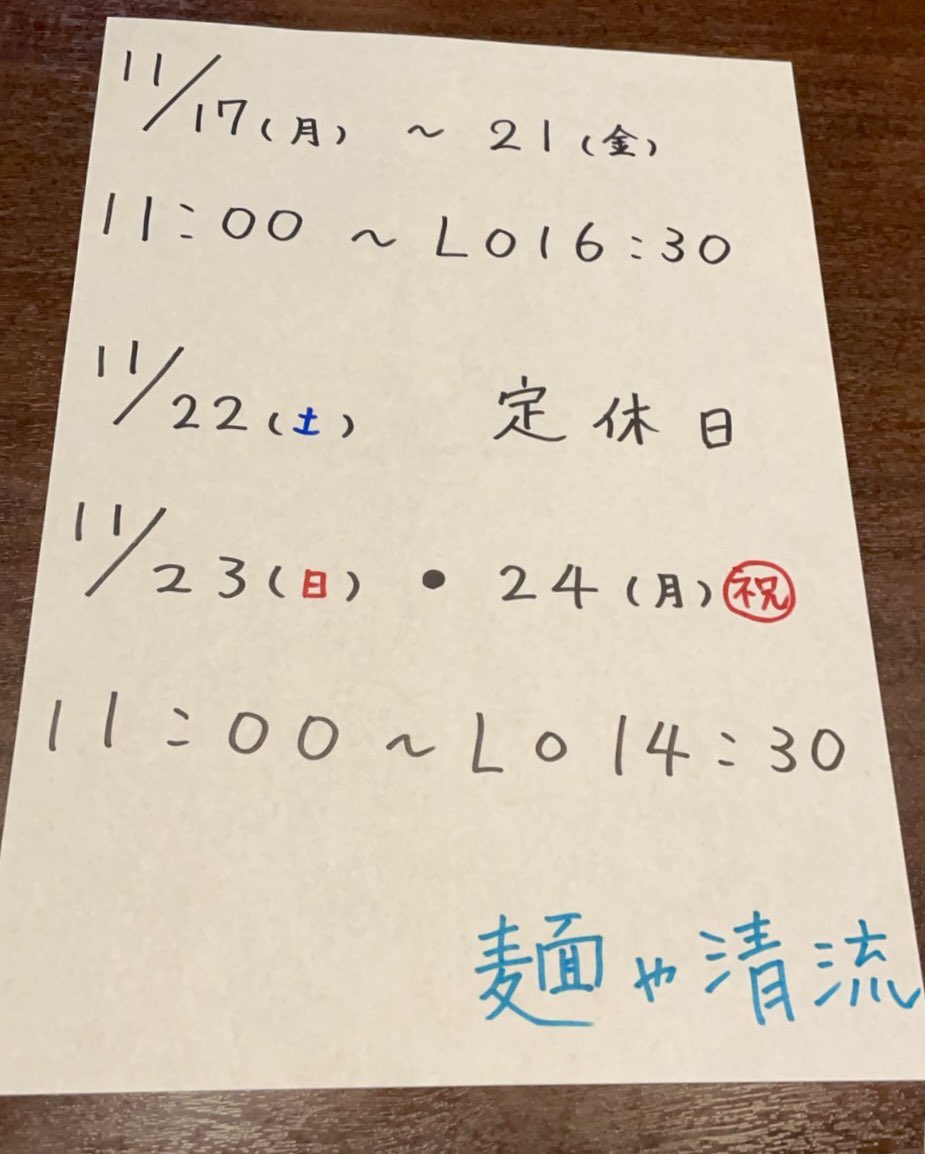 11/17(月) ～ 21(金)
11:00 ～ LO16:30
11/22(土) 定休日
11/23(日)・24(月)㊗
11:00～LO 14:30
麺や清流